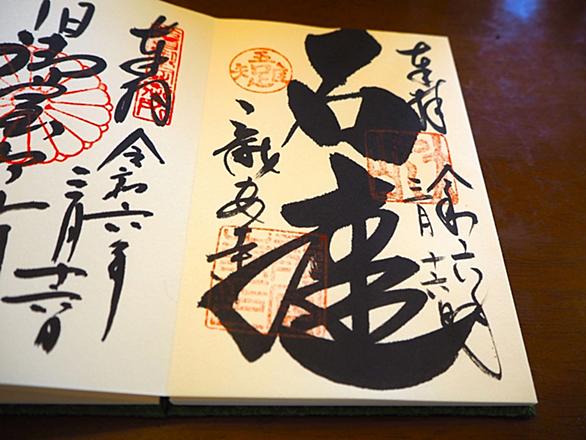 奉拝
令和六年
三月十六日
石庭
龍安寺
奉拝
令和六年
三月十六日
旧御室